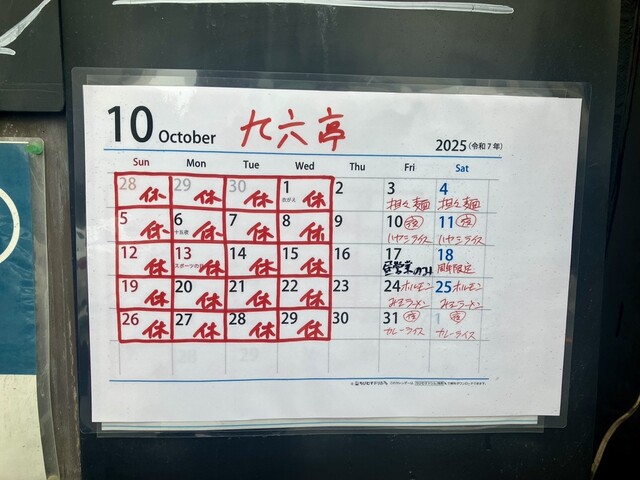 10 October 九六亭 2025(令和7年)
Sun Mon Tue Wed Thu Fri Sat
28 休 29 休 30 休 1 休 2 3 4
担々麺 担々麺
5 休 6 休 7 休 8 休 9 10 夜 11 夜
十五夜
ハヤシライス ハヤシライス
12 休 13 休 14 休 15 休 16 17 18
スポーツの日
昼営業のみ 周年限定
19 休 20 休 21 休 22 休 23 24 ホルモン 25 ホルモン
みそラーメン みそラーメン
26 休 27 休 28 休 29 休 30 31 夜 1 夜
カレーライス カレーライス
29